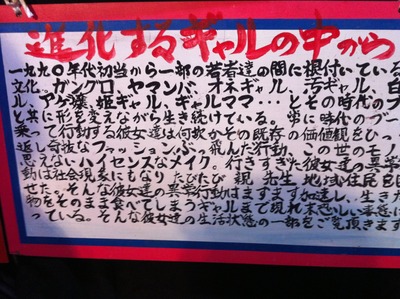 進化するギャルの中から
一九九〇年代初当から一部の若者達の間に根付いている
文化。ガングロ、ヤマンバ、オネギャル、汚ギャル、白
ル、アゲ嬢、姫ギャル、ギャルママ…とその時代のブ
と共に形を変えながら生き続けている。常に時代のブー
乗って行動する彼女達は何故かその既存の価値観をひっ
返し奇抜なファッション、ぶっ飛んだ行動、この世のモノ
思えないハイセンスなメイク。行きすぎた彼女達の異常
動は社会現象にもなり たびたび 親、先生、地域住民を困
せた。そんな彼女達の異常行動はますます加速し、生きた
物をそのまま食べてしまうギャルまで現れ末恐しい事態に
っている。そんな彼女達の生活状態の一部をご覧頂きます